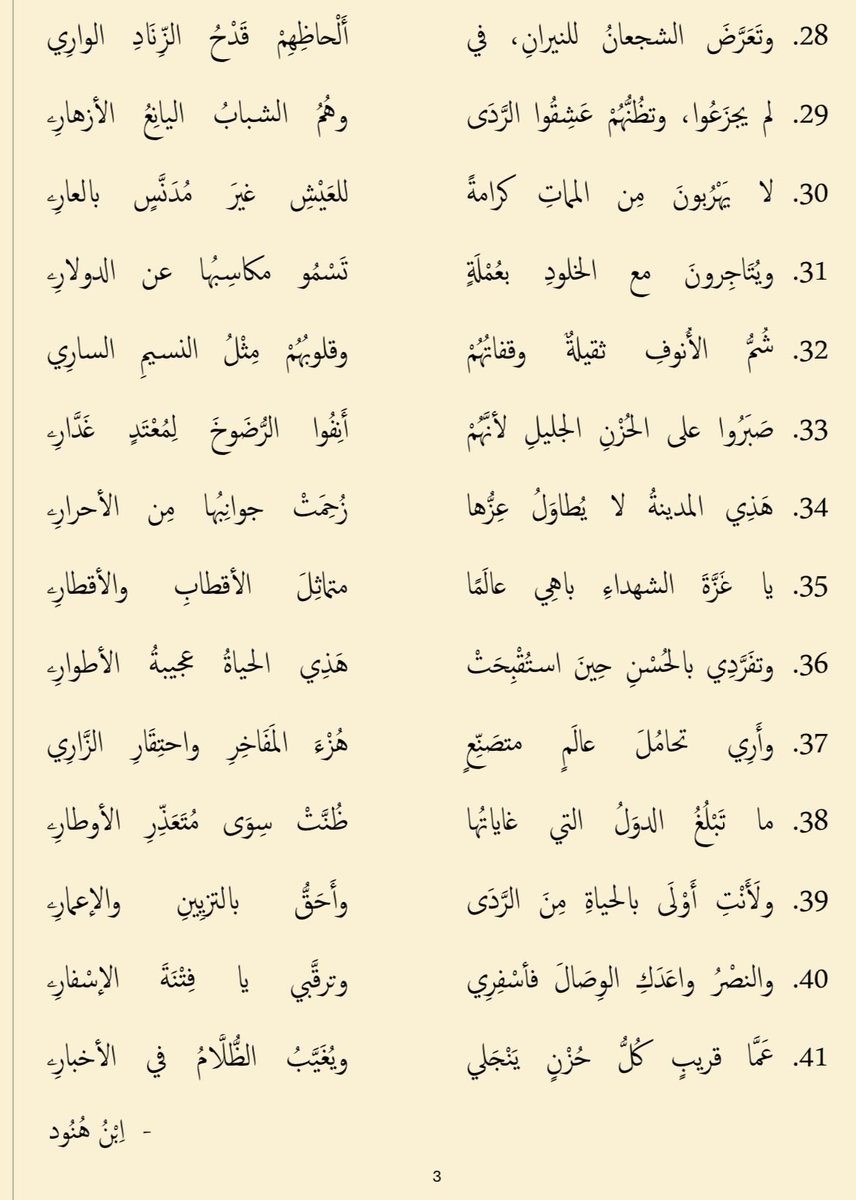 28. وتَعَرَّضَ الشجعانُ للنيرانِ، في أَلْحاظِهِمْ قَدْحُ الزِّنَادِ الوارِي
29. لم يجزَعُوا، وتظُنُّهُمْ عَشِقُوا الرَّدَى وهُمُ الشبابُ اليانِعُ الأزهارِ
30. لا يَهْرُبونَ مِن المماتِ كرامةً للعَيْشِ غيرَ مُدَنَّسٍ بالعارِ
31. ويُتَاجِرونَ مع الخلودِ بعُمْلَةٍ تَسْمُو مكاسِبُها عن الدولارِ
32. شُمُّ الأُنوفِ ثقيلةٌ وقفاتُهُمْ وقلوبُهُمْ مِثْلُ النسيمِ السارِي
33. صَبَرُوا على الحُزْنِ الجليلِ لأنَّهُمْ أَنِفُوا الرُّضَوخَ لِمُعْتَدٍ غَدَّارِ
34. هَذِي المدينةُ لا يُطاوَلُ عِزُّها زُحِمَتْ جوانِبُها مِن الأحرارِ
35. يا غَزَّةَ الشهداءِ باهِي عالَمًا متماثِلَ الأقطابِ والأقطارِ
36. وتفَرَّدِي بالحُسْنِ حِينَ استُقْبِحَتْ هَذِي الحياةُ عجيبةُ الأطوارِ
37. وأَرِي تحامُلَ عالَمٍ متصَنِّعٍ هُزْءَ المَفَاخِرِ واحتِقَارِ الزَّارِي
38. ما تَبْلُغُ الدوَلُ التي غاياتُها ظُنَّتْ سِوَى مُتَعَذِّرِ الأوطارِ
39. ولَأَنْتِ أَوْلَى بالحياةِ مِنَ الرَّدَى وأَحَقُّ بالتزيِينِ والإعمارِ
40. والنصْرُ واعَدَكِ الوِصَالَ فأسْفِرِي وترقَّبي يا فِتْنَةَ الإسْفارِ
41. عَمَّا قريبٍ كُلُّ حُزْنٍ يَنْجَلي ويُغَيَّبُ الظُّلَّامُ في الأخبارِ
- اِبْنُ هُنُود
3